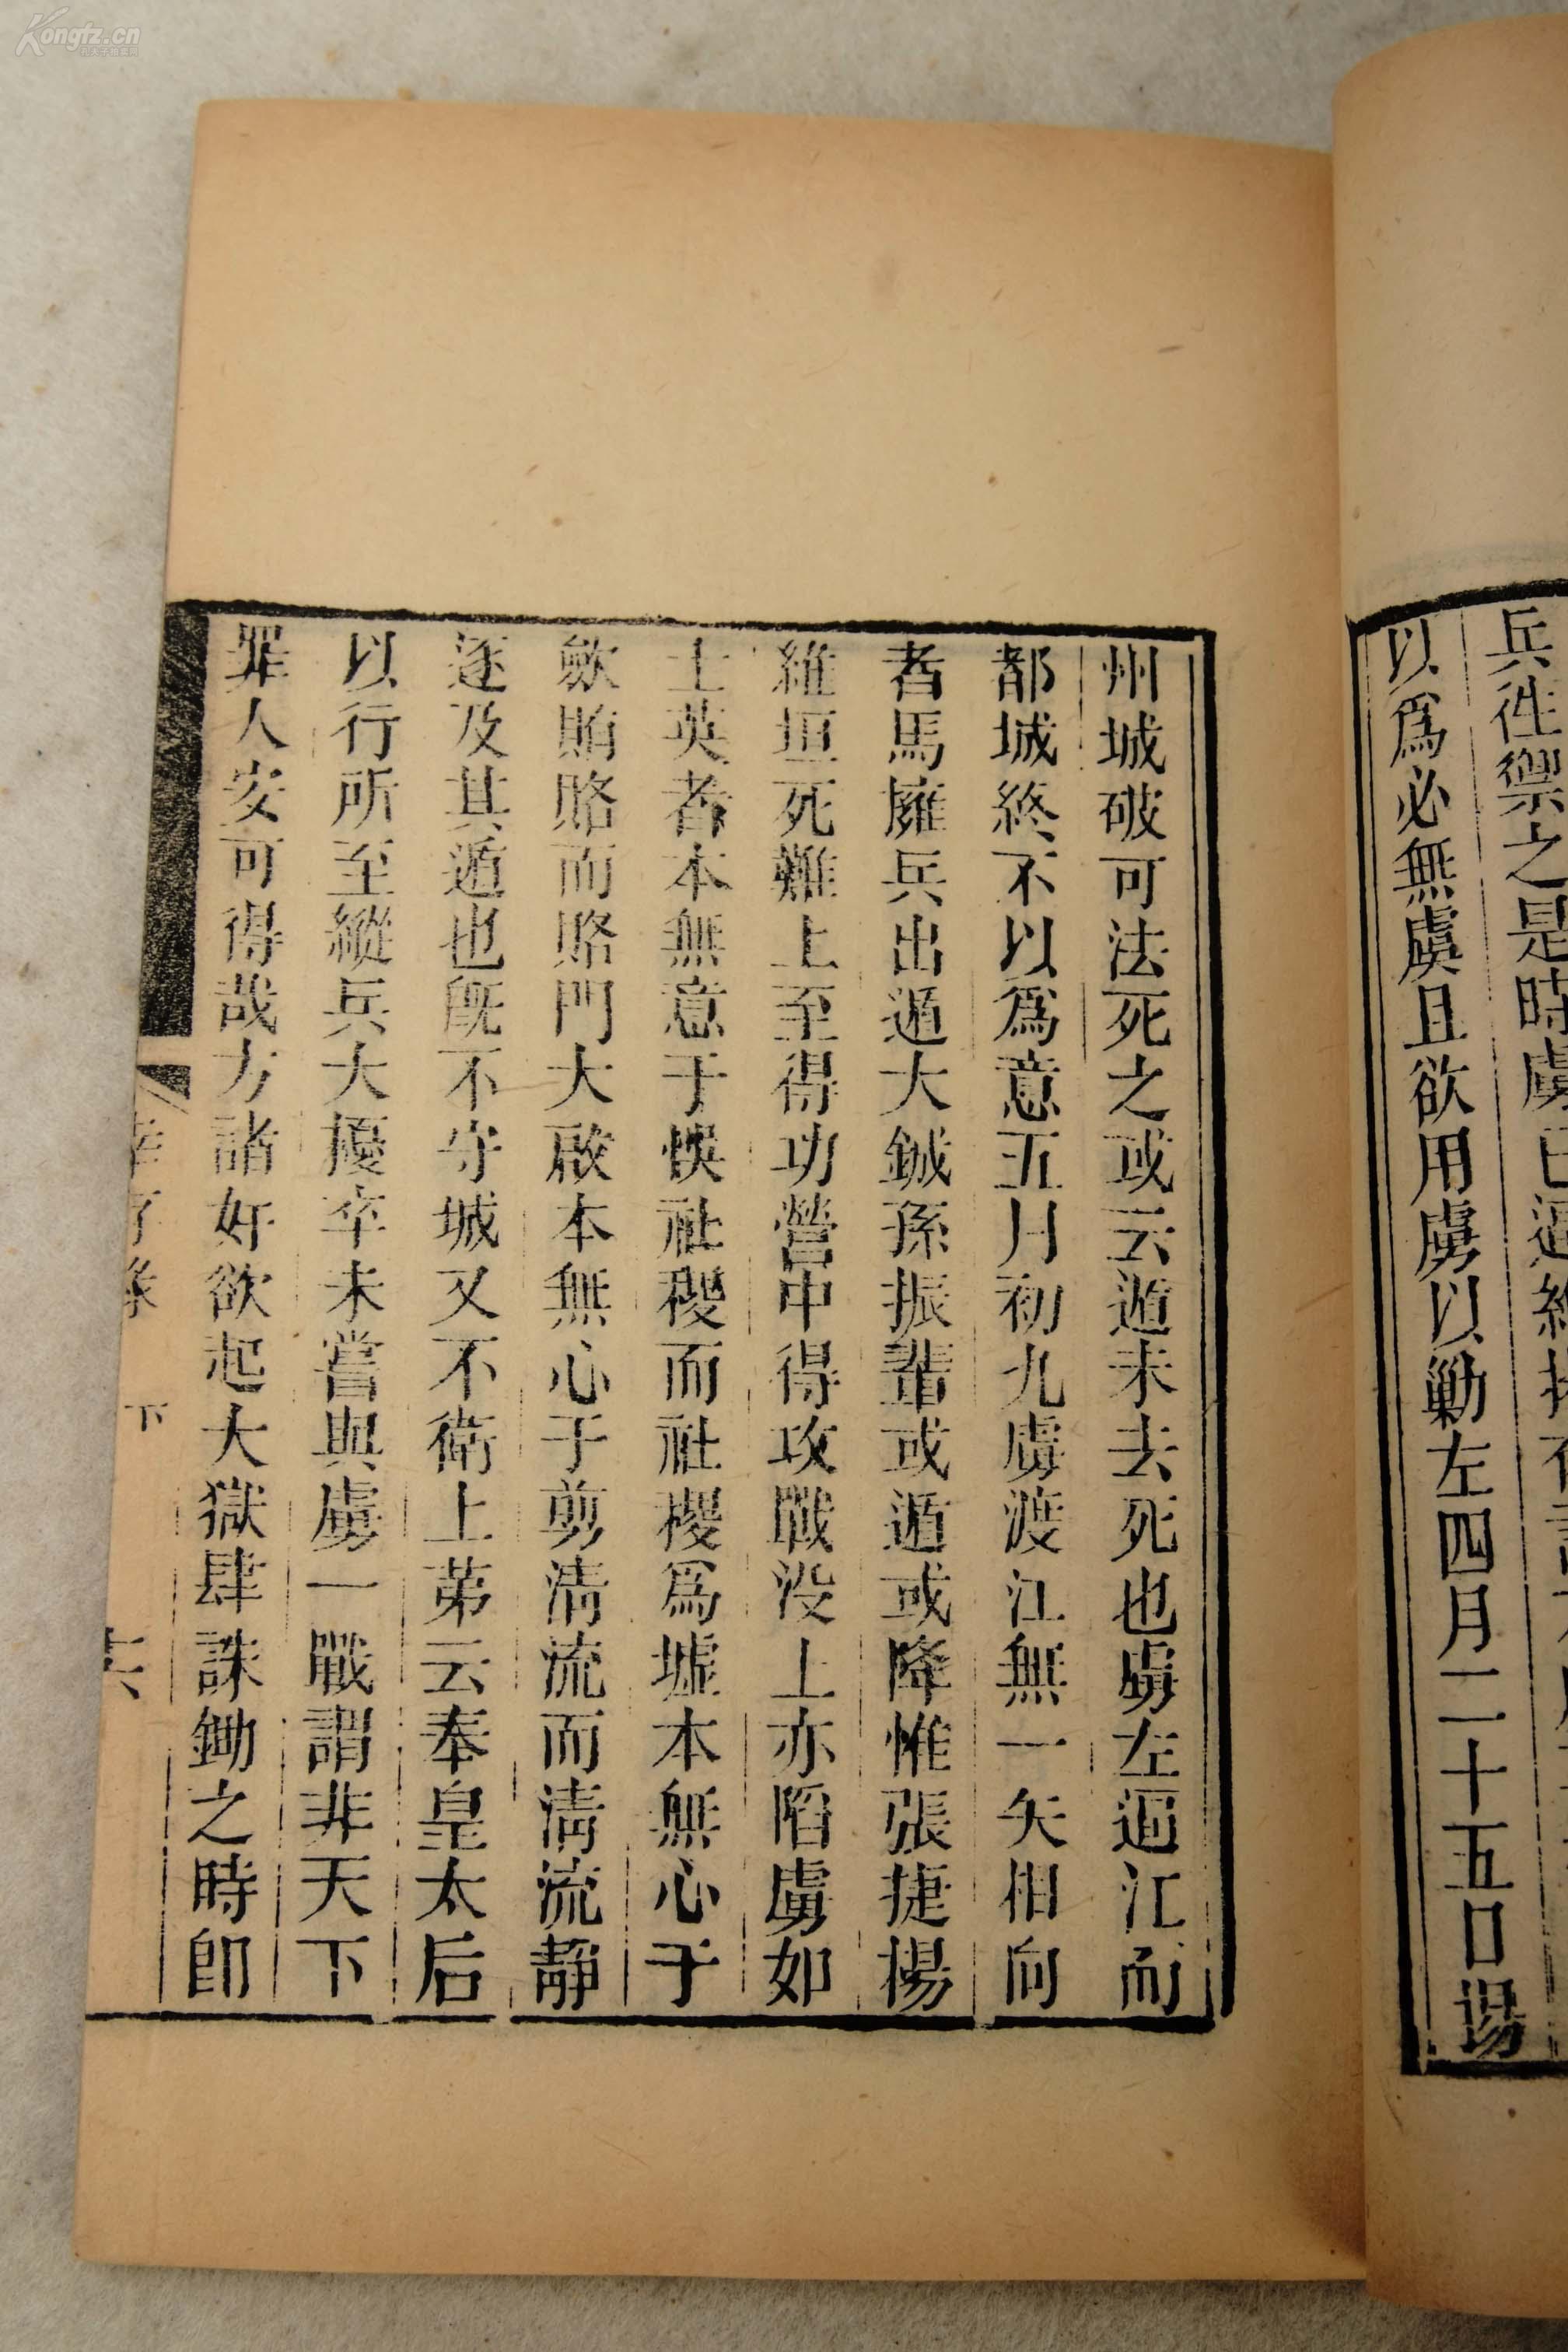 兵徃禦之是時虜已逼維揚
以爲必無虞且欲用虜以勦左四月二十五日揚
州城破可法死之或云遁未去死也虜左逼江而
都城終不以爲意五月初九虜渡江無一矢相向
者馬擁兵出遁大鋮孫振輩或遁或降惟張捷楊
維垣死難上至得功營中得攻戰没上亦陷虜如
士英者本無意于悞社稷而社稷爲墟本無心于
斂賄賂而賂門大啟本無心于剪清流而清流靜
逐及其遁也旣不守城又不衛上第云奉皇太后
以行所至縱兵大擾卒未嘗與虜一戰謂非天下
罪人安可得哉方諸奸欲起大獄肆誅鋤之時卽
幸存錄 下 十六
Kongfz.cn